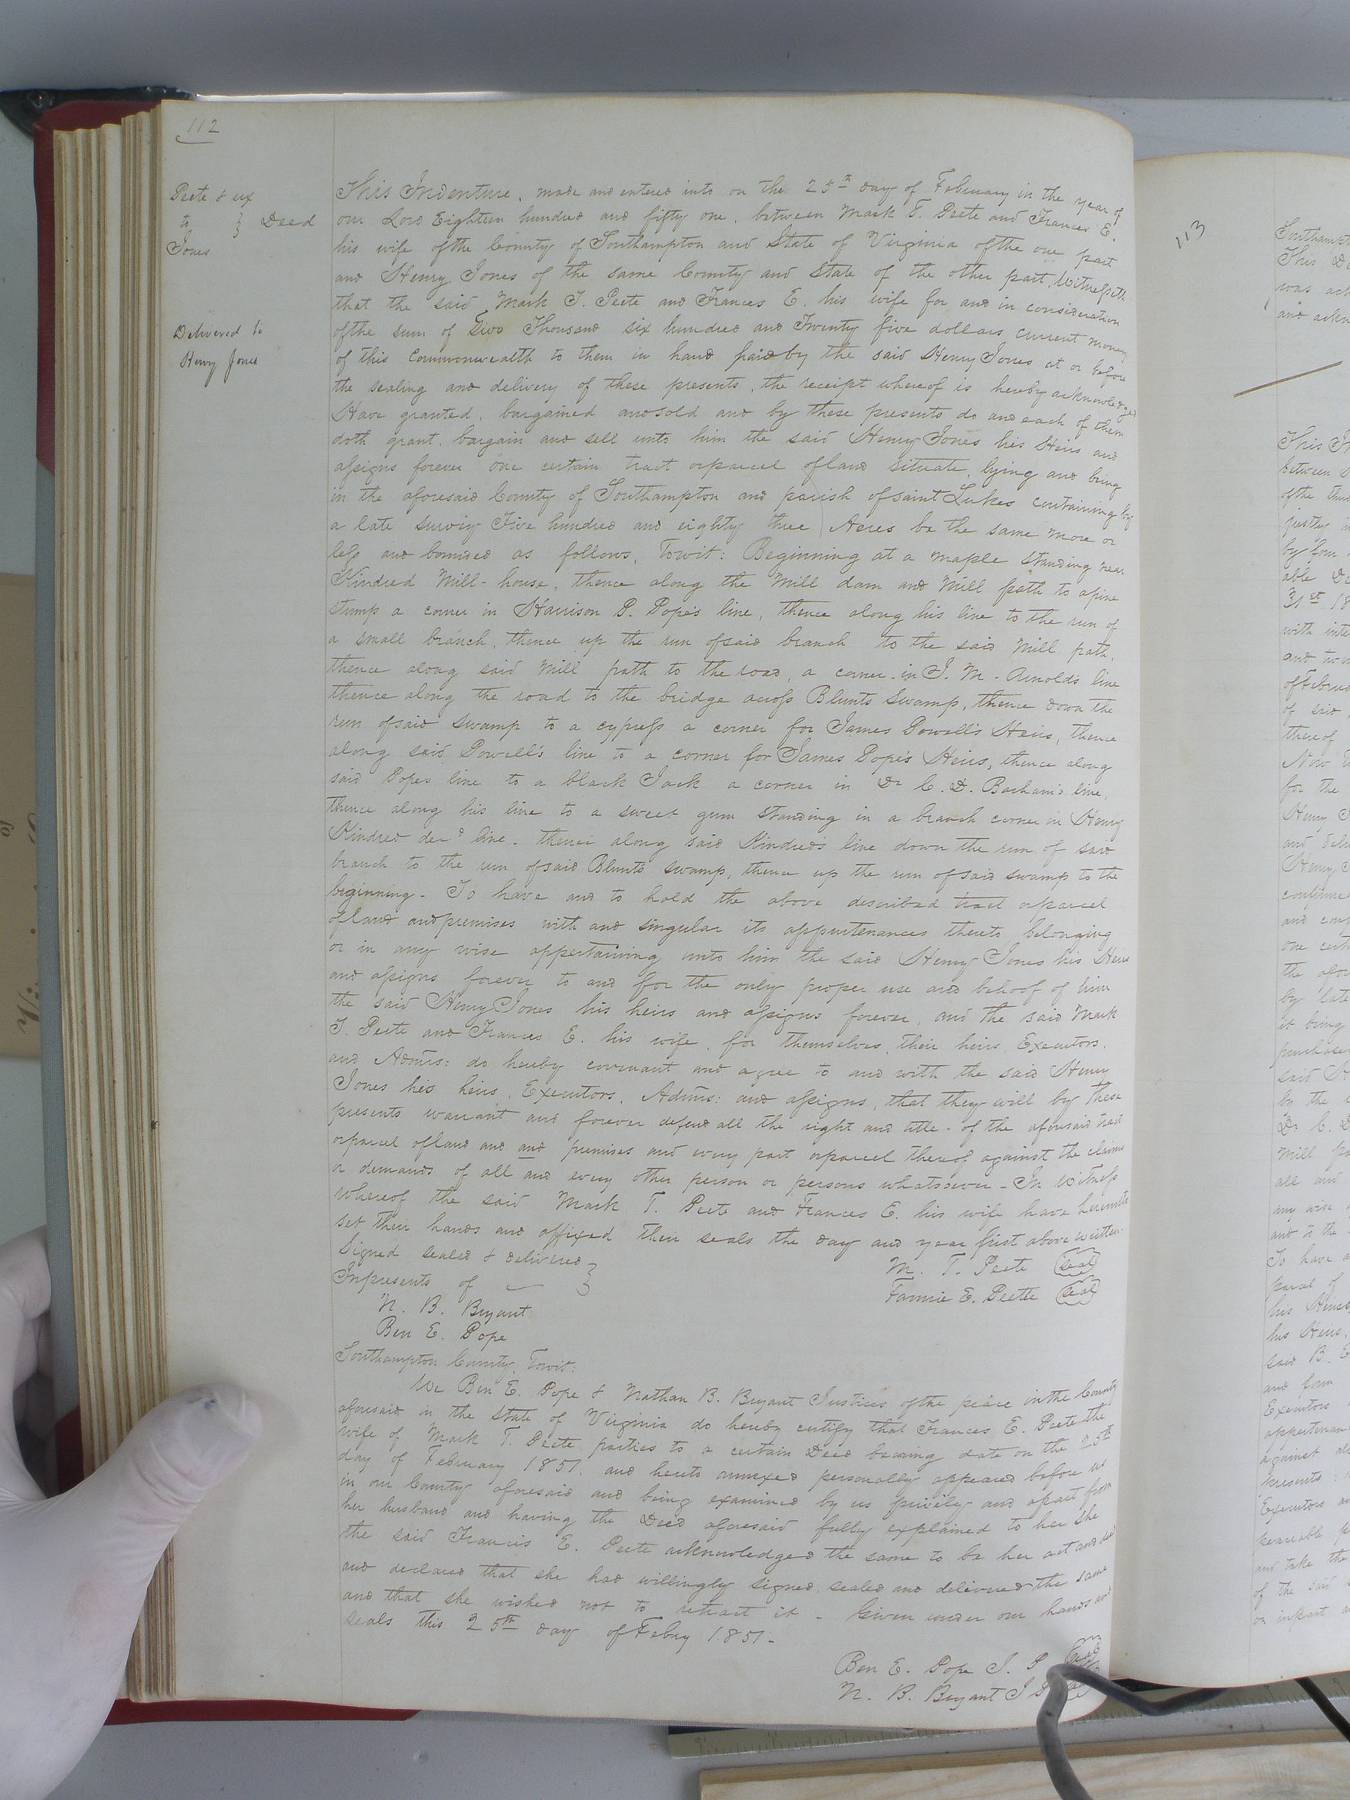 112
Peete & ux
to } Deed
Jones
Delivered to
Henry Jones
This Indenture, made and entered into on the 25th day of February in the year of
our Lord Eighteen hundred and fifty one, between Mark T. Peete and Frances E.
his wife of the County of Southampton and State of Virginia of the one part
and Henry Jones of the same County and State of the other part, Witnesseth
that the said Mark T. Peete and Frances E. his wife for and in consideration
of the sum of Two Thousand six hundred and Twenty five dollars current money
of this Commonwealth to them in hand paid by the said Henry Jones at or before
the sealing and delivery of these presents, the receipt whereof is hereby acknowledged
Have granted, bargained and sold and by these presents do and each of them
doth grant, bargain and sell unto him the said Henry Jones his Heirs and
assigns forever one certain tract or parcel of land situate, lying and being
in the aforesaid County of Southampton and parish of Saint Lukes containing by
a late survey Five hundred and eighty three Acres be the same more or
less and bounded as follows, Towit: Beginning at a maple standing near
Kindred Mill-house, thence along the Mill dam and Mill path to a pine
stump a corner in Harrison P. Pope's line, thence along his line to the run of
a small branch, thence up the run of said branch to the said Mill path,
thence along said Mill path to the road, a corner in J. M. Arnolds line
thence along the road to the bridge across Blunts Swamp, thence down the
run of said swamp to a cypress a corner for James Powell's Heirs, thence
along said Powell's line to a corner for James Pope's Heirs, thence along
said Popes line to a black Jack a corner in Dr C. D. Barham's line,
thence along his line to a sweet gum standing in a branch corner in Henry
Kindred decd line, thence along said Kindred's line down the run of said
branch to the run of said Blunts swamp, thence up the run of said swamp to the
beginning - To have and to hold the above described tract or parcel
of land and premises with and singular its appurtenances thereto belonging
or in any wise appertaining unto him the said Henry Jones his Heirs
and assigns forever to and for the only proper use and behoof of him
the said Henry Jones his heirs and assigns forever, and the said Mark
T. Peete and Frances E. his wife, for themselves, their heirs Executors,
and Admrs: do hereby covenant and agree to and with the said Henry
Jones his heirs, Executors, Admrs: and assigns, that they will by these
presents warrant and forever defend all the right and title of the aforesaid tract
or parcel of land and and premises and every part or parcel thereof against the claims
or demands of all and every other person or persons whatsoever - In Witness
whereof the said Mark T. Peete and Frances E. his wife have hereunto
set their hands and affixed their seals the day and year first above written.
Signed sealed & delivered }
In presents of
M. T. Peete Seal
Fannie E. Peete Seal
N. B. Bryant
Ben E. Pope
Southampton County, Towit:
We Ben E. Pope & Nathan B. Bryant Justices of the peace in the County
aforesaid in the State of Virginia do hereby certify that Frances E. Peete the
wife of Mark T. Peete parties to a certain Deed bearing date on the 25th
day of February 1851. and hereto annexed personally appeared before us
in our County aforesaid and being examined by us privily and apart from
her husband and having the Deed aforesaid fully explained to her She
the said Francis E. Peete acknowledged the same to be her act and deed
and declared that she had willingly signed sealed and delivered the same
and that she wished not to retract it - Given under our hands and
seals this 25th day of Febry 1851 -
Ben E. Pope J. P
N. B. Bryant J P
113
Southampt
This De
was ack
and ackn
This I
between
of the
justly
by four
able
31st 18
with inte
and
of Februa
of said
thereof
Now
for the
Henry J
and deli
Henry
continue
and
one cert
the afor
by late
it being
purchase
said
by the
Dr C. D
Mill pa
all and
any wise
and to the
To have
parcel of
his Heirs
his Heirs
said B. E
and form
Executors
appurtenan
against
presents
Executors an
peaceable p
and take the
of the said
or in part